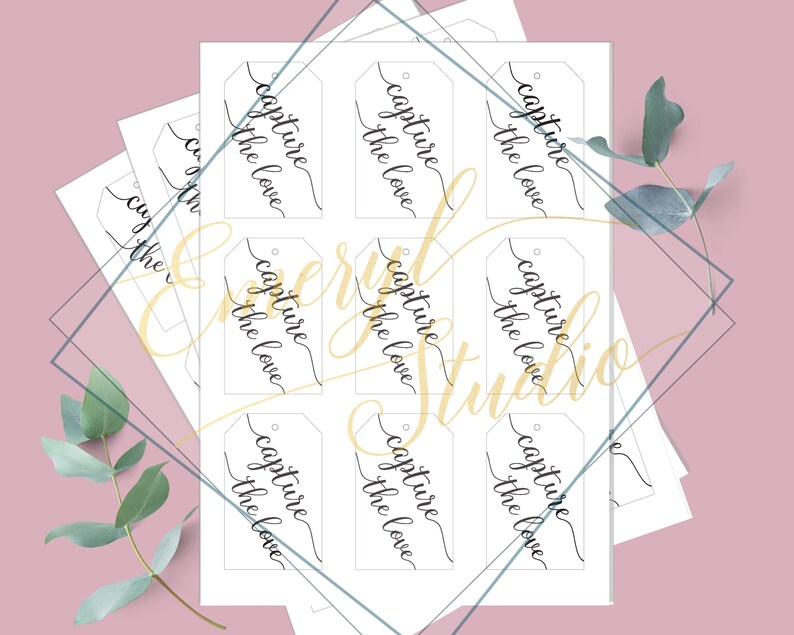 capture
the love
capture
the love
capture
the love
capture
the love
capture
the love
capture
the love
capture
the love
capture
the love
capture
the love
the
Emeryl
Studio